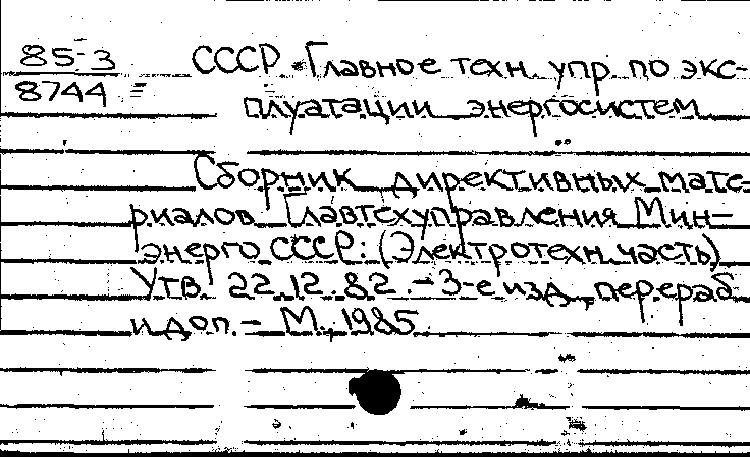 85-3
8744 =
СССР. Главное техн. упр. по экс-
плуатации энергосистем
Сборник директивных мате-
риалов Главтехуправления Мин-
энерго СССР: (Электротехн. часть)
Утв. 22.12.82. - 3-е изд., перераб.
и доп. - М., 1985